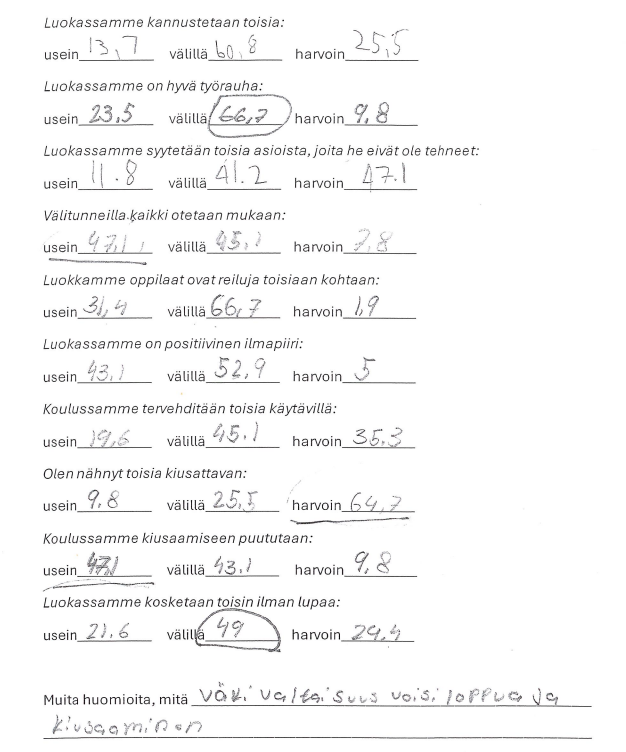 Luokassamme kannustetaan toisia:
usein 13,7 välillä 60,8 harvoin 25,5
Luokassamme on hyvä työrauha:
usein 23,5 välillä 66,7 harvoin 9,8
Luokassamme syytetään toisia asioista, joita he eivät ole tehneet:
usein 11.8 välillä 41.2 harvoin 47.1
Välitunneilla kaikki otetaan mukaan:
usein 47,1 välillä 45,1 harvoin 7,8
Luokkamme oppilaat ovat reiluja toisiaan kohtaan:
usein 31,4 välillä 66,7 harvoin 1,9
Luokassamme on positiivinen ilmapiiri:
usein 43,1 välillä 52,9 harvoin 5
Koulussamme tervehditään toisia käytävillä:
usein 19,6 välillä 45.1 harvoin 35.3
Olen nähnyt toisia kiusattavan:
usein 9.8 välillä 25,5 harvoin 64,7
Koulussamme kiusaamiseen puututaan:
usein 47,1 välillä 43,1 harvoin 9,8
Luokassamme kosketaan toisin ilman lupaa:
usein 21.6 välillä 49 harvoin 29,4
Muita huomioita, mitä väkivaltaisuus voisi loppua ja
kiusaaminen